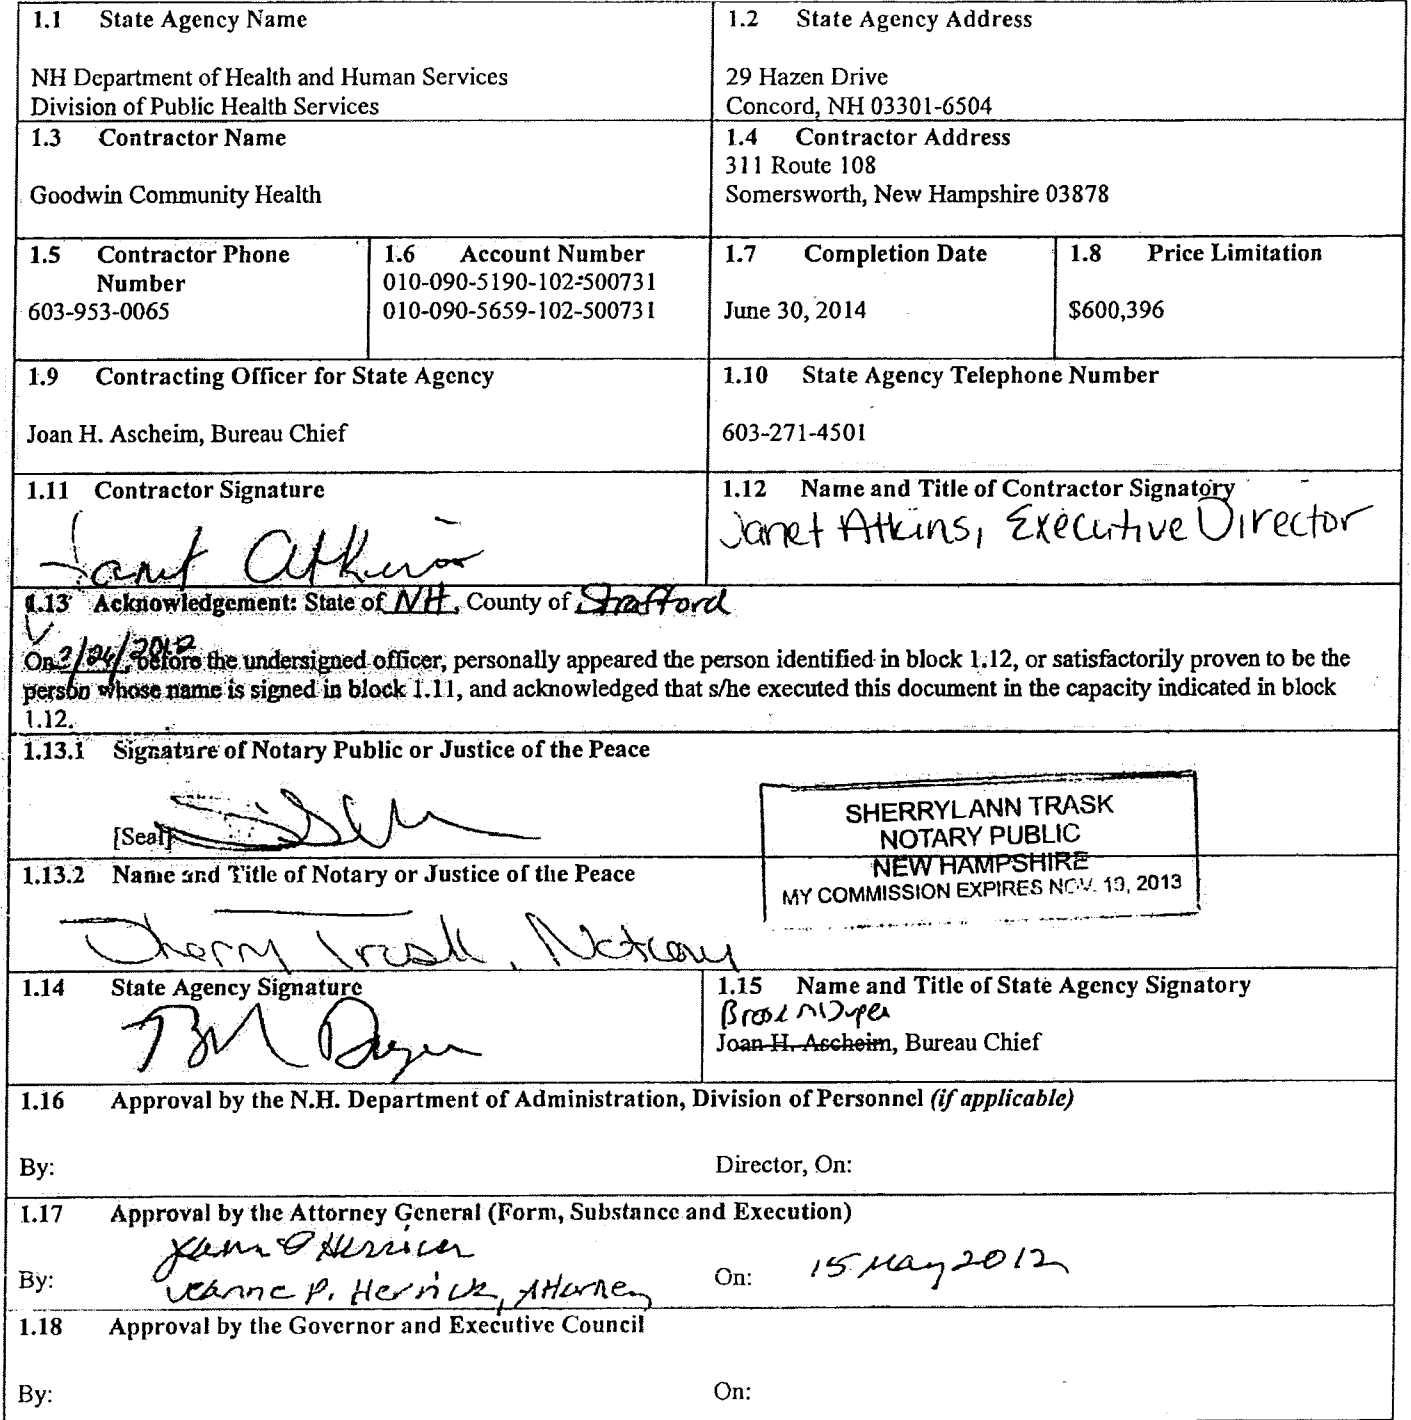 1.1 State Agency Name
NH Department of Health and Human Services
Division of Public Health Services
1.2 State Agency Address
29 Hazen Drive
Concord, NH 03301-6504
1.3 Contractor Name
Goodwin Community Health
1.4 Contractor Address
311 Route 108
Somersworth, New Hampshire 03878
1.5 Contractor Phone
Number
603-953-0065
1.6 Account Number
010-090-5190-102-500731
010-090-5659-102-500731
1.7 Completion Date
June 30, 2014
1.8 Price Limitation
$600,396
1.9 Contracting Officer for State Agency
Joan H. Ascheim, Bureau Chief
1.10 State Agency Telephone Number
603-271-4501
1.11 Contractor Signature
Janet Atkins
1.12 Name and Title of Contractor Signatory
Janet Atkins, Executive Director
1.13 Acknowledgement: State of NH, County of Strafford
On 2012, before the undersigned officer, personally appeared the person identified in block 1.12, or satisfactorily proven to be the
person whose name is signed in block 1.11, and acknowledged that s/he executed this document in the capacity indicated in block
1.12.
1.13.1 Signature of Notary Public or Justice of the Peace
[Seal]
SHERRYLANN TRASK
NOTARY PUBLIC
NEW HAMPSHIRE
MY COMMISSION EXPIRES NOV. 2013
1.13.2 Name and Title of Notary or Justice of the Peace
Sherry Trask, Notary
1.14 State Agency Signature
1.15 Name and Title of State Agency Signatory
Joan H. Ascheim, Bureau Chief
1.16 Approval by the N.H. Department of Administration, Division of Personnel (if applicable)
By:
Director, On:
1.17 Approval by the Attorney General (Form, Substance and Execution)
By:
Jeanne P. Herrick, Attorney
On: 15 May 2012
1.18 Approval by the Governor and Executive Council
By:
On: